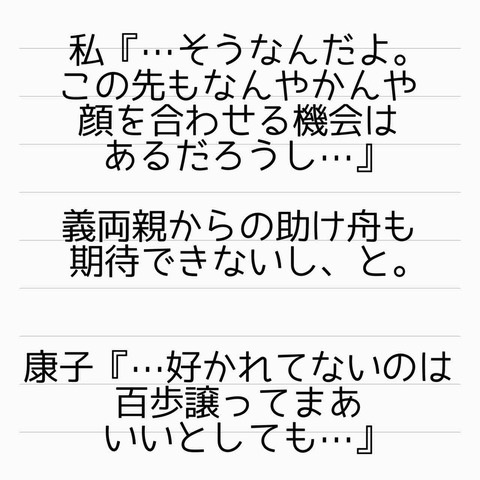 私『…そうなんだよ。
この先もなんやかんや
顔を合わせる機会は
あるだろうし…』
義両親からの助け舟も
期待できないし、と。
康子『…好かれてないのは
百歩譲ってまあ
いいとしても…』